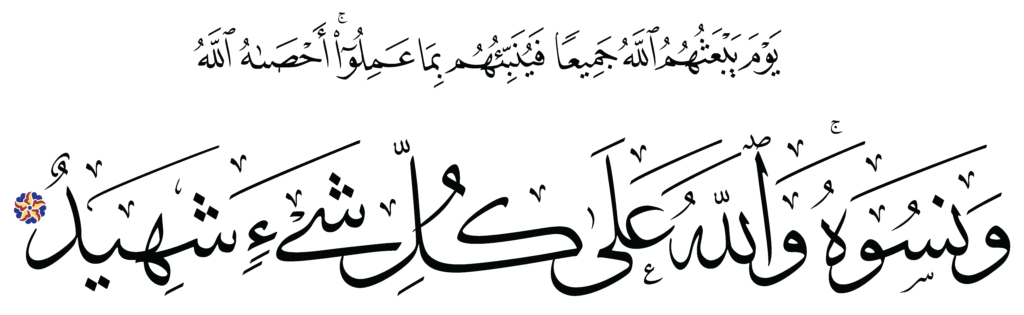 يَوْمَ يَبْعَثُهُمُ ٱللَّهُ جَمِيعًا فَيُنَبِّئُهُم بِمَا عَمِلُوٓا۟ ۚ أَحْصَىٰهُ ٱللَّهُ
وَنَسُوهُ ۚ وَٱللَّهُ عَلَىٰ كُلِّ شَىْءٍ شَهِيدٌ